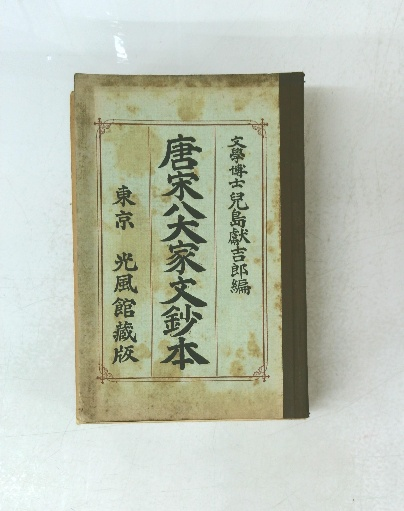 文學博士兒島獻吉郎編
唐宋八大家文鈔本
東京 光風館藏版